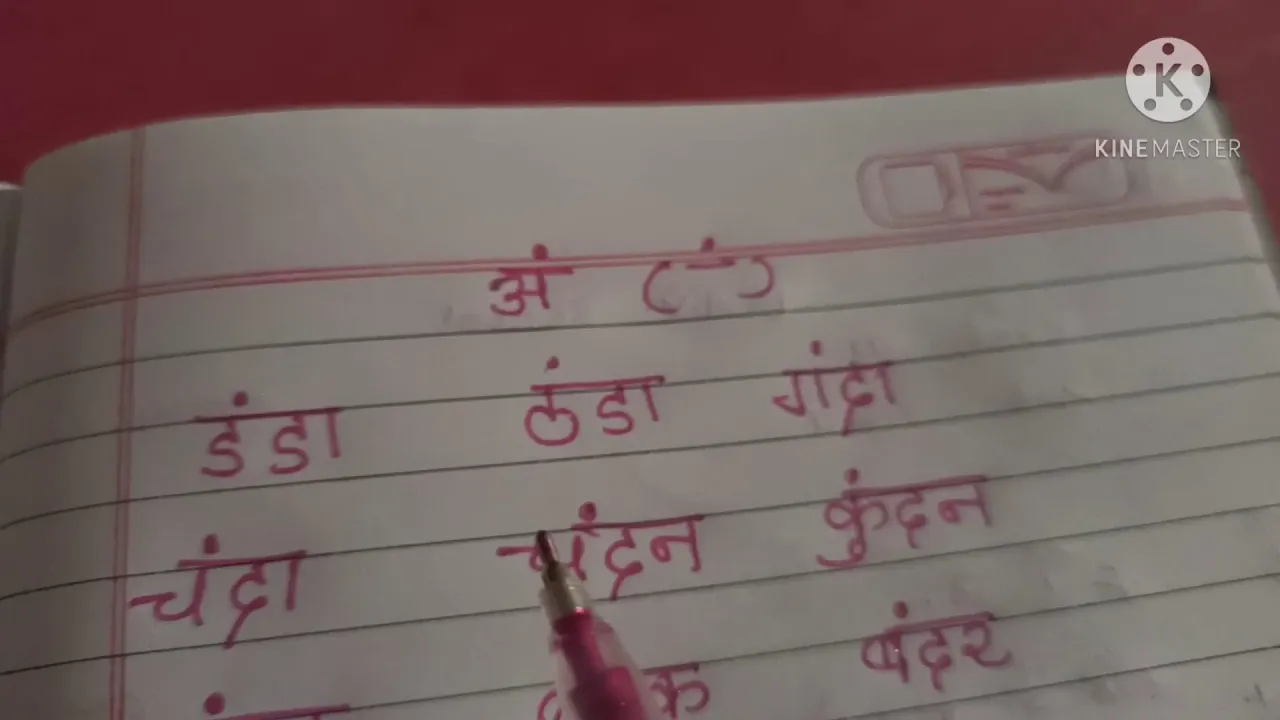 KINEMASTER
अं (ं)
डंडा ठंडा गंदा
चंदा चंदन कुंदन
बंदर